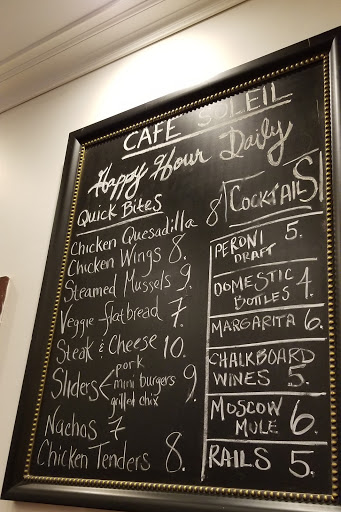 CAFE SOLEIL
Happy Hour Daily
Quick Bites
Chicken Quesadilla 8
Chicken Wings 8.
Steamed Mussels 9.
Veggie flatbread 7
Steak & Cheese 10.
Sliders pork
mini burgers 9
grilled chix
Nachos 7
Chicken Tenders 8.
COCKTAILS
PERONI 5.
DRAFT
DOMESTIC
BOTTLES 4.
MARGARITA 6.
CHALKBOARD
WINES 5.
MOSCOW
MULE 6.
RAILS 5.